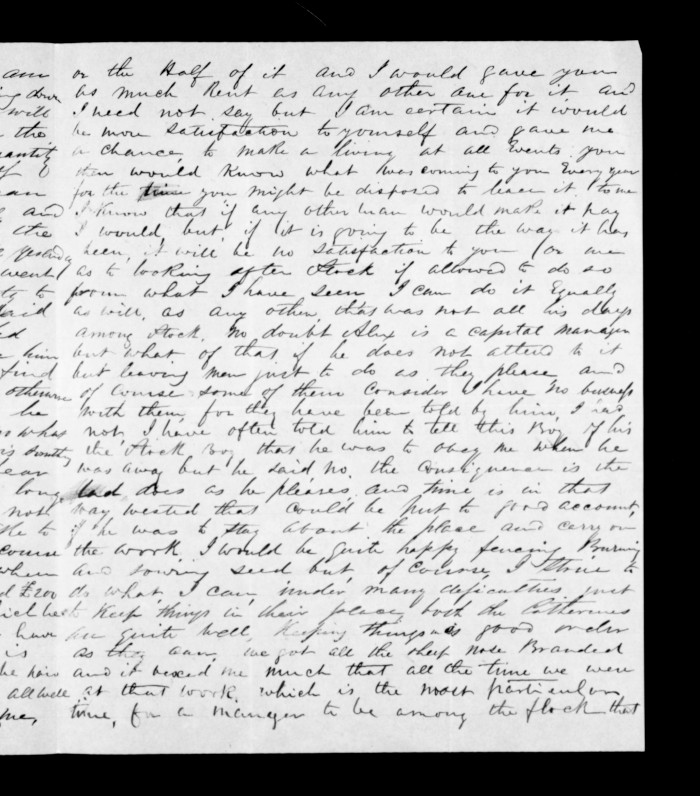 am or the Half of it and I would gave you
ing down as much Rent as any other one for it and
will I need not say but I am certain it would
the be more satisfaction to yourself and gave me
uantity a chance to make a living at all Events you
then would Know what was coming to you Every year
for the time you might be disposed to leace it to me
and I Know that if any other man would make it pay
the I would, but, if it is going to be the way it has
yesterday been, it will be no satisfaction to you or me
went as to looking after stock if allowed to do so
to from what I have seen I can do it Equally
said as will, as any other, that was not all his days
among stock, no doubt Alex is a capital manager
him but what of that, if he does not attend to it
find but leaving men just to do as they please and
otherwise of course some of them Consider I have no business
he with them, for they have been told by him, I had
not, I have often told him to tell this Boy of his
the stock Boy that he was to obay me when he
ear was away but he said no. the Consiquence is the
long lad does as he pleases and time is in that
not way wested that could be put to good account,
to if he was to stay about the place and carry on
course the work, I would be quite happy fencing Burning
when and sowing seed but, of course, I strive to
£200 do what I can, under many deficulties just
to Keep things in their place, both the Catherines
have are quite well, Keeping things in good order
is as they can, we got all the sheep nose Branded
he has and it vexed me much that all the time we were
all well at that work, which is the most particular
me, time, for a manger to be among the flock that